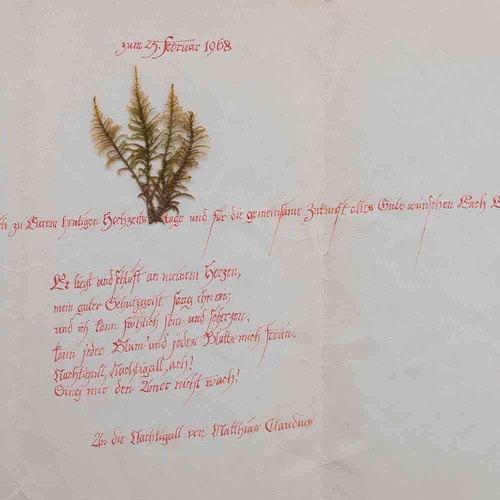 zum 23. Februar 1968
ch zu Eurem heutigen Hochzeitstage und für die gemeinsame Zukunft alles Gute wünschen Euch
Er liegt und schläft an meinem Herzen,
mein guter Schutzgeist sang ihn ein;
und ich kann fröhlich sein und scherzen,
kann jeder Blum' und jedes Blatts mich freun.
Nachtigall, Nachtigall, ach!
Sing mir den Amor nicht wach!
An die Nachtigall von Matthias Claudius